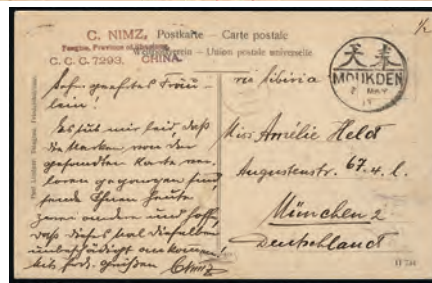 1/2
C. NIMZ, Postkarte – Carte postale
Tsingtau, Province of Shantung,
Weltpostverein – Union postale universelle
C. C. C. 7293. CHINA.
via Sibiria
奉天
MOUKDEN
MAY
Sehr geehrtes Fräu-
lein!
Es tut mir leid, daß
die Marken von der
gesandten Karte ver-
loren gegangen sind,
sende Ihnen heute
zwei andere und hoffe,
daß dieses Mal dieselben
unbeschädigt ankommen.
Mit frdl. Grüßen CNimz
Miss Amélie Held
Augustenstr. 67.4. l.
München 2
Deutschland